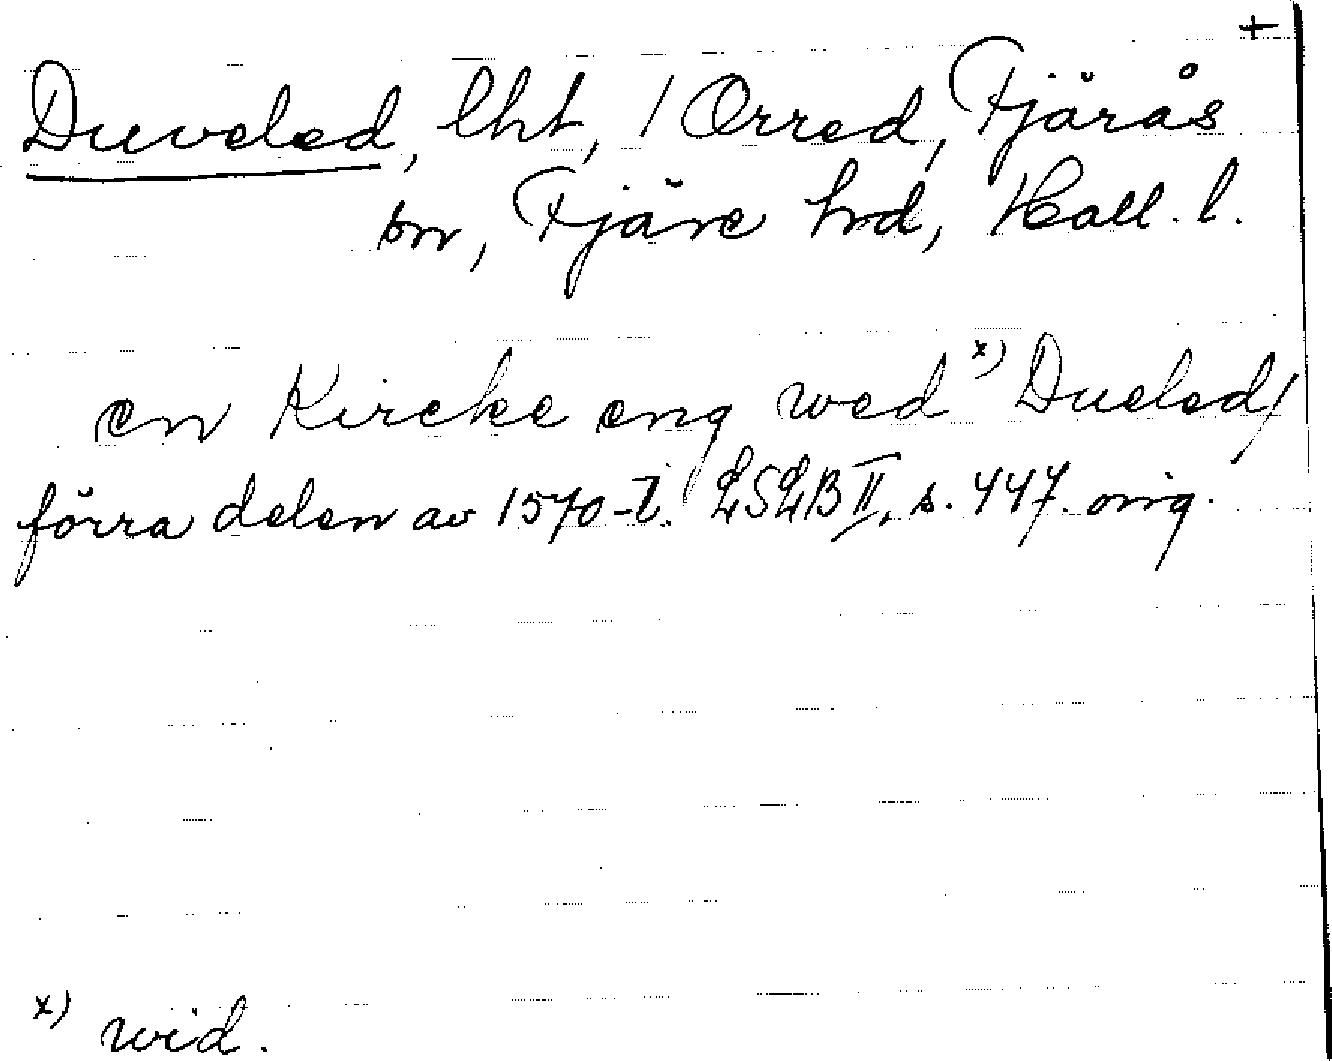 +
Duveled, lht, 1 Orred, Fjärås
sn, Fjäre hrd, Hall. l.
en Kircke eng wed x) Dueled/
förra delen av 1570-t. LSLB II, s. 447. orig.
x) wid.